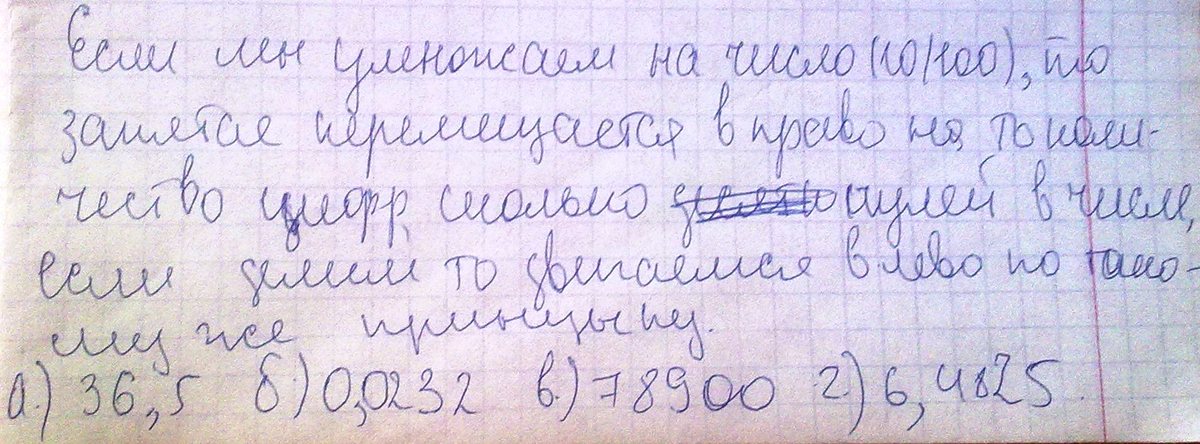 Если мы умножаем на число (10/100), то
запятае перемещается в право на то коли-
чество цифр, сколько нулей в числе,
если делим то двигаемся в лево по тако-
му же прынцыпу.
а.) 36,5 б.) 0,0232 в.) 78900 г.) 6,4825.